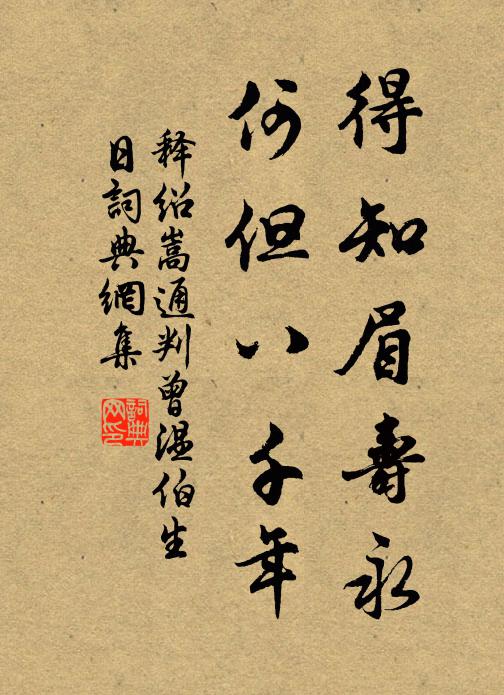 得知眉壽永
何但八千年
释绍嵩通判曾温伯生
日詞典網集
詞典
网印